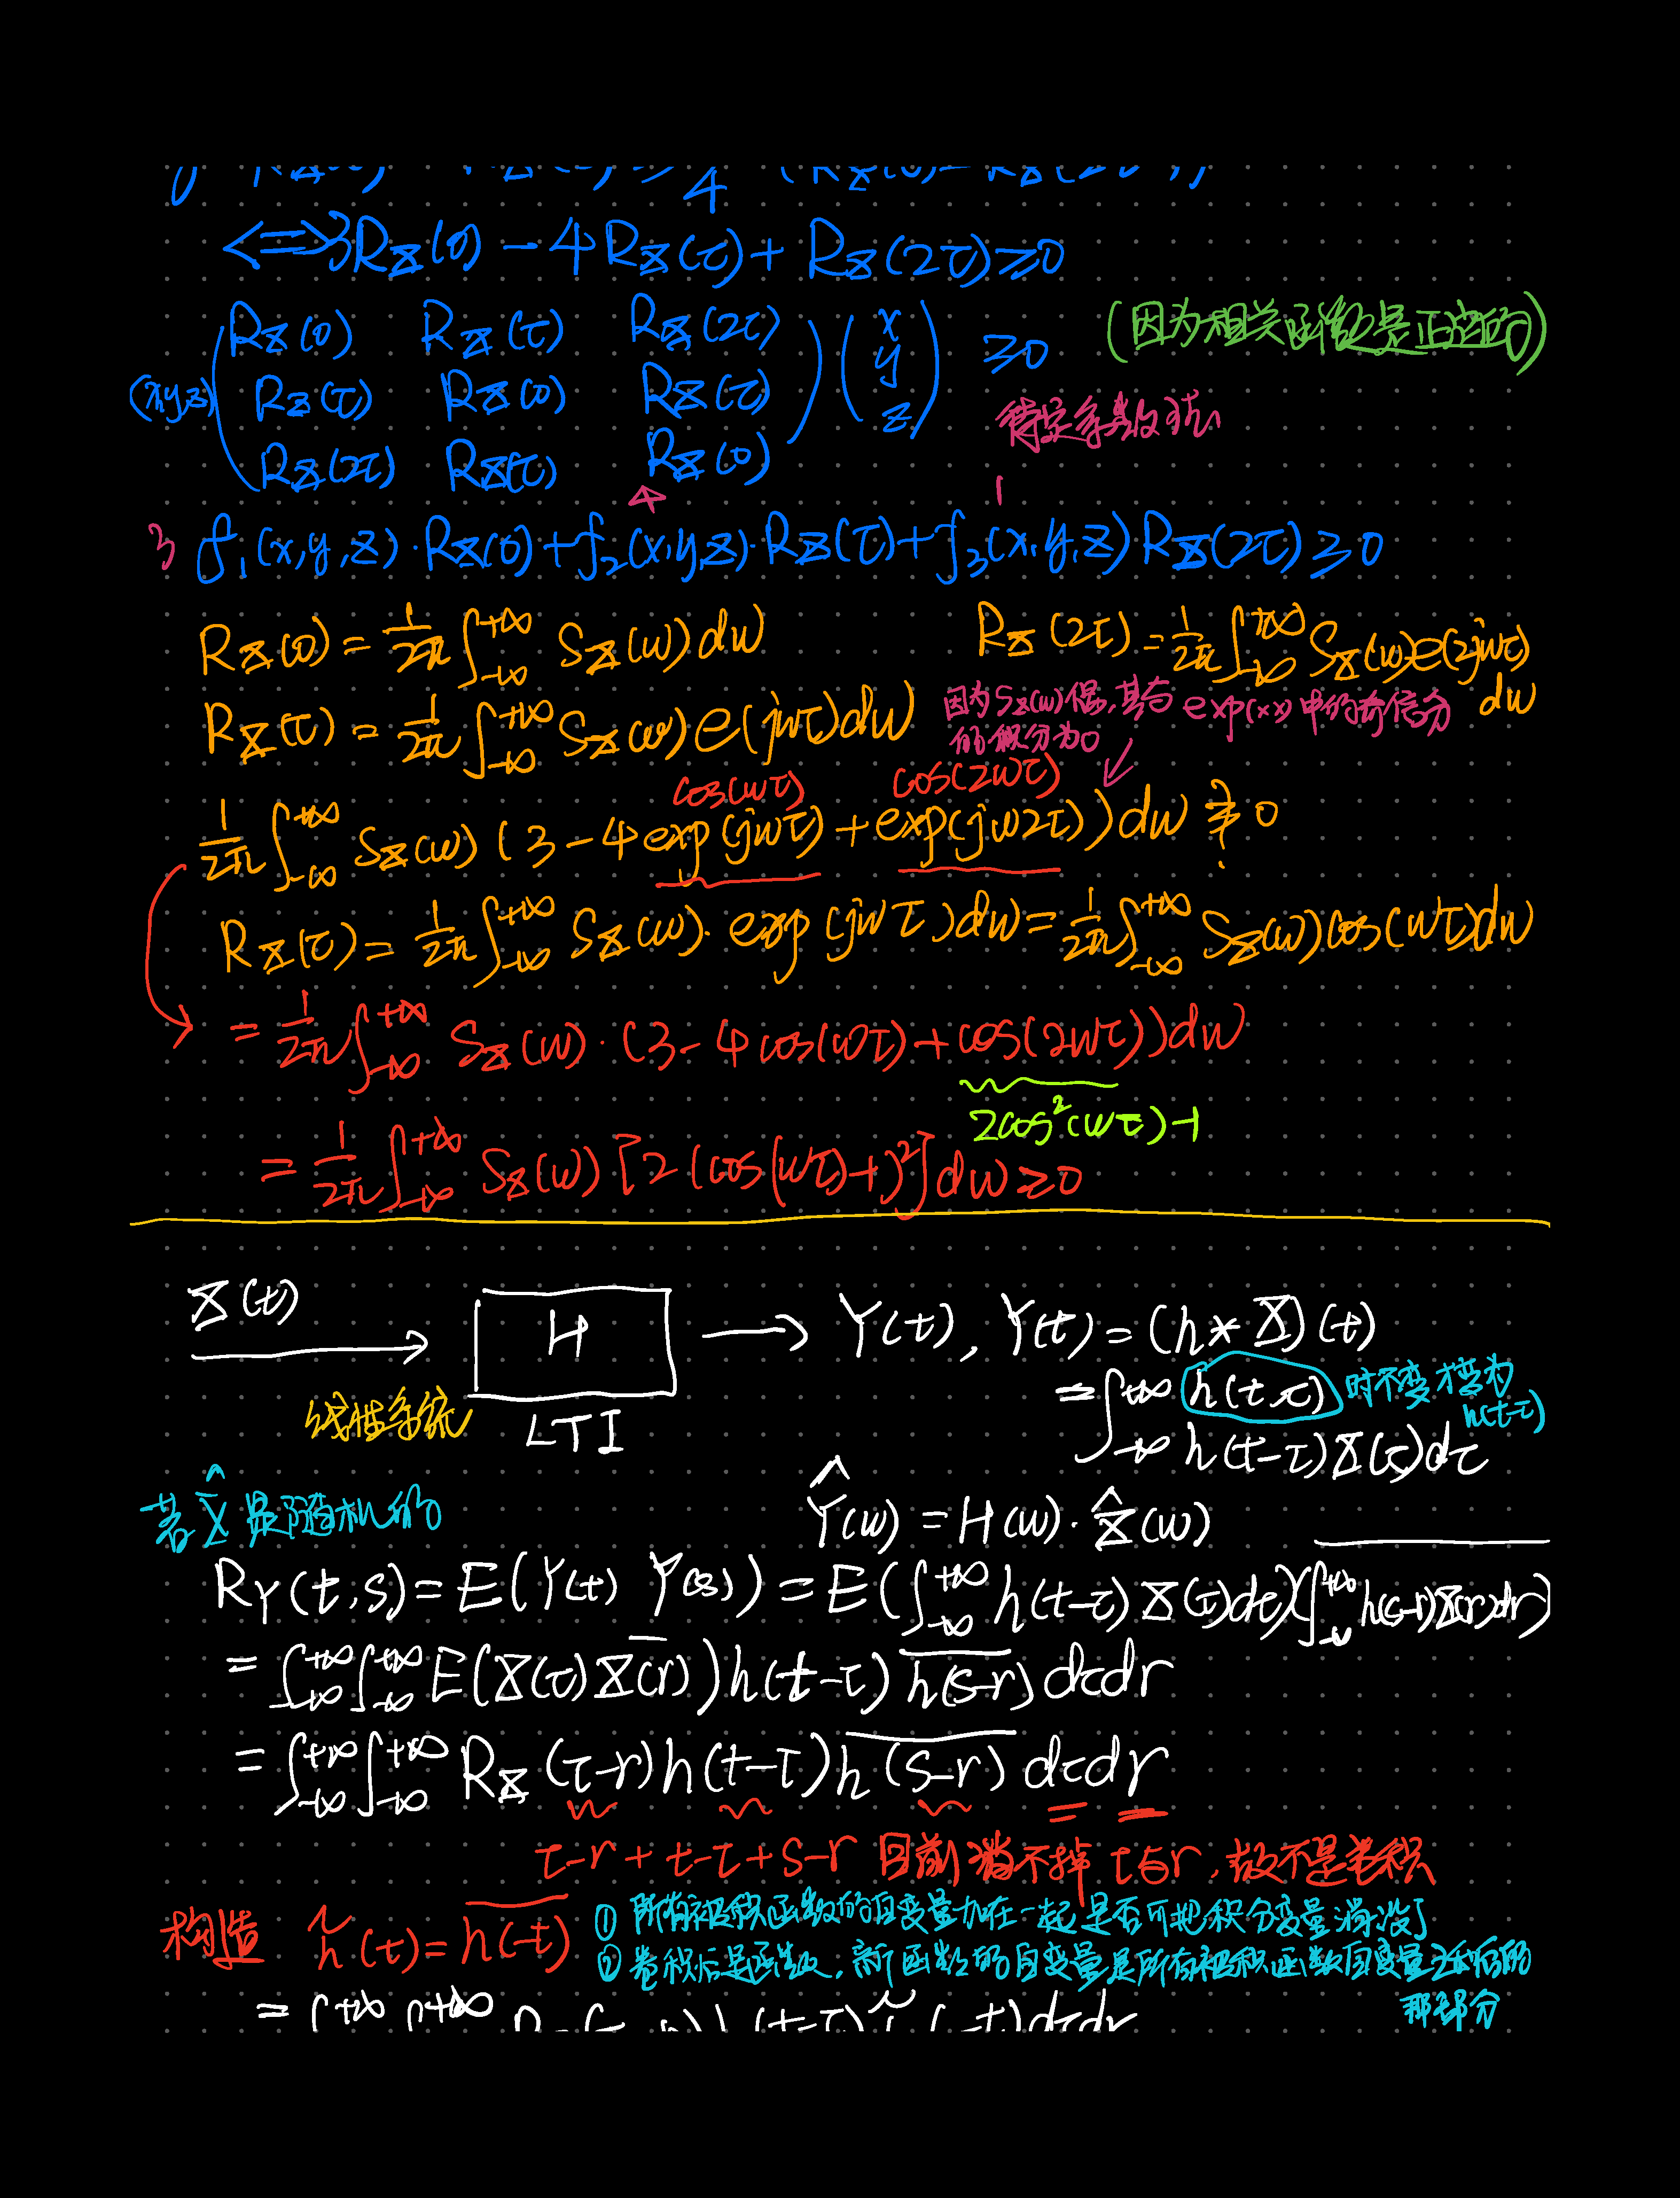 ⟺ 3R_X(0) - 4R_X(τ) + R_X(2τ) ≥ 0
(x,y,z) ( R_X(0) R_X(τ) R_X(2τ) ) ( x ) ≥ 0 (因为相关函数是正定的)
R_X(τ) R_X(0) R_X(τ) y
R_X(2τ) R_X(τ) R_X(0) z 待定系数法
3 4 1
f₁(x,y,z)·R_X(0) + f₂(x,y,z)·R_X(τ) + f₃(x,y,z) R_X(2τ) ≥ 0
R_X(0) = 1/2π ∫_{-∞}^{+∞} S_X(w) dw R_X(2τ) = 1/2π ∫_{-∞}^{+∞} S_X(w) e(2jwτ) dw
R_X(τ) = 1/2π ∫_{-∞}^{+∞} S_X(w) e(jwτ) dw
因为 S_X(w) 偶, 其与 exp(xx) 中的奇 部分
的积分为0
cos(wτ) cos(2wτ)
1/2π ∫_{-∞}^{+∞} S_X(w) (3 - 4exp(jwτ) + exp(jw2τ)) dw ≥ 0 ?
R_X(τ) = 1/2π ∫_{-∞}^{+∞} S_X(w)·exp(jwτ) dw = 1/2π ∫_{-∞}^{+∞} S_X(w) cos(wτ) dw
= 1/2π ∫_{-∞}^{+∞} S_X(w)·(3 - 4cos(wτ) + cos(2wτ)) dw
2cos²(wτ)-1
= 1/2π ∫_{-∞}^{+∞} S_X(w) [2(cos(wτ)-1)²] dw ≥ 0
X(t) → H → Y(t), Y(t) = (h * X)(t)
线性系统 LTI
= ∫_{-∞}^{+∞} h(t,τ) 时不变才变为 h(t-τ)
h(t-τ) X(τ) dτ
若 X̂ 是随机的 Ŷ(w) = H(w)·X̂(w)
R_Y(t,s) = E(Y(t) Y(s)) = E(∫_{-∞}^{+∞} h(t-τ) X(τ) dτ)(∫_{-∞}^{+∞} h(s-r) X(r) dr)
= ∫_{-∞}^{+∞} ∫_{-∞}^{+∞} E(X(τ) X̄(r)) h(t-τ) h̄(s-r) dτdr
= ∫_{-∞}^{+∞} ∫_{-∞}^{+∞} R_X(τ-r) h(t-τ) h̄(s-r) dτdr
τ-r + t-τ + s-r 目前消不掉 τ与r, 故不是卷积
构造 h̃(t) = h̄(-t)
① 所有被积函数的自变量加在一起是否可把积分变量消没了
② 卷积后是函数, 新函数的自变量是所有被积函数自变量之和后的
那部分